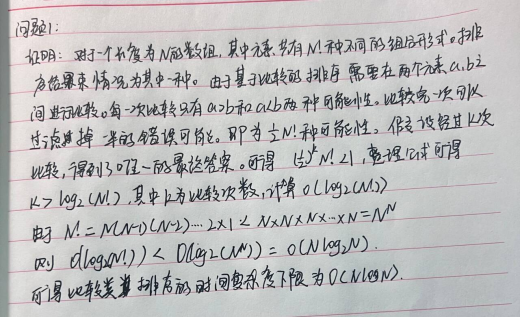 问题1:
证明: 对于一个长度为N的数组,其中元素共有N!种不同的组合形式。排
序结果情况为其中一种。由于基于比较的排序需要在两个元素a,b之
间进行比较。每一次比较只有a>b和a<b两种可能性。比较完一次可以
过滤掉一半的错误可能。即为½N!种可能性。假设经过K次
比较,得到了唯一的最终答案。可得 (½)ᵏN!<1,整理公式可得
K>log₂(N!),其中k为比较次数,计算O(log₂(N!))
由于 N!=N(N-1)(N-2)....2×1<N×N×N×...×N=Nᴺ
则 O(log₂(N!))<O(log₂(Nᴺ))=O(Nlog₂N).
可得比较类排序的时间复杂度下限为O(NlogN).